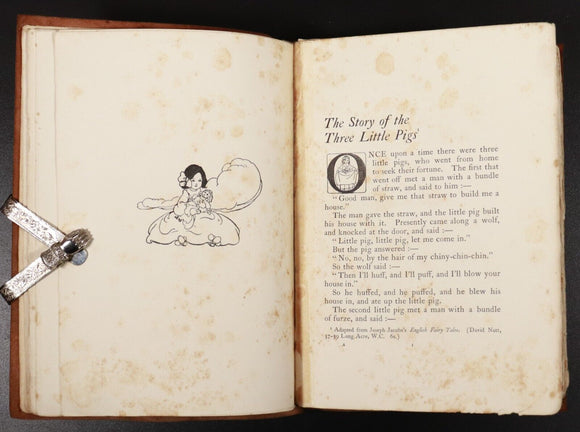 The Story of the
Three Little Pigs¹
ONCE upon a time there were three
little pigs, who went from home
to seek their fortune. The first that
went off met a man with a bundle
of straw, and said to him :—
"Good man, give me that straw to build me a
house."
The man gave the straw, and the little pig built
his house with it. Presently came along a wolf,
and knocked at the door, and said :—
"Little pig, little pig, let me come in."
But the pig answered :—
"No, no, by the hair of my chiny-chin-chin."
So the wolf said :—
"Then I'll huff, and I'll puff, and I'll blow your
house in."
So he huffed, and he puffed, and he blew his
house in, and ate up the little pig.
The second little pig met a man with a bundle
of furze, and said :—
¹ Adapted from Joseph Jacobs's English Fairy Tales. (David Nutt,
57-59 Long Acre, W.C. 6s.)
A 1